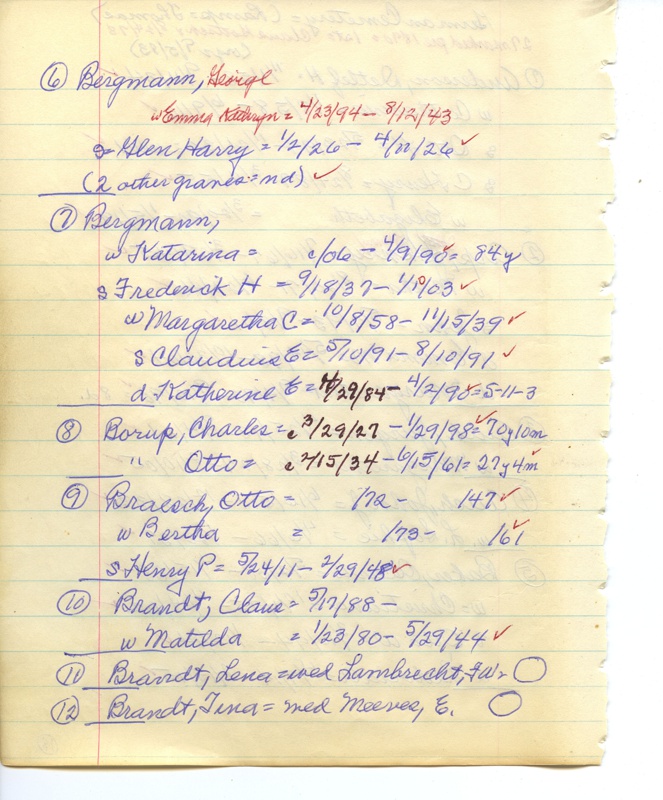 ⑥ Bergmann, George
w Emma Kathryn = 4/23/94 - 8/12/43
s Glen Harry = 1/2/26 - 4/11/26 ✓
(2 other graves = nd) ✓
⑦ Bergmann,
w Katarina = c/06 - 4/9/90 = 84y
s Frederick H = 9/18/37 - 1/1/03 ✓
w Margaretha C = 10/8/58 - 11/15/39 ✓
s Claudius E = 5/10/91 - 8/10/91 ✓
d Katherine E = /29/84 - 4/2/90 = 5-11-3
⑧ Borup, Charles = c 3/29/27 - 1/29/98 = 70y10m
" Otto = c 2/15/34 - 6/15/61 = 27y4m
⑨ Braesch, Otto = /72 - /47 ✓
w Bertha = /73 - /61 ✓
s Henry P = 5/24/11 - 2/29/48 ✓
⑩ Brandt, Claus = 5/17/88 -
w Matilda = 1/23/80 - 5/29/44 ✓
⑪ Brandt, Lena = wed Lambrecht, FW.
⑫ Brandt, Tina = wed Meeves, E.